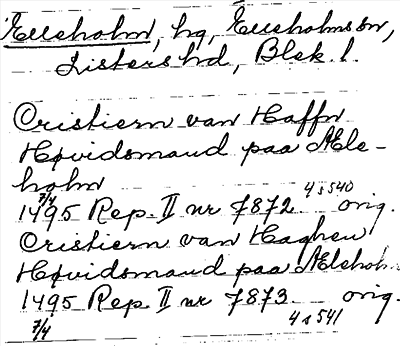 Elleholm, hg, Elleholms sn,
Listers hd, Blek. l.
Cristiern van Haffn
Høvidsmand paa Æle-
holm
7/4 4 s 540
1495 Rep. II nr 7872 orig.
Cristiern van Haghen
Høvidsmand paa Ælehol
1495 Rep. II nr 7873 orig.
7/4 4 s 541